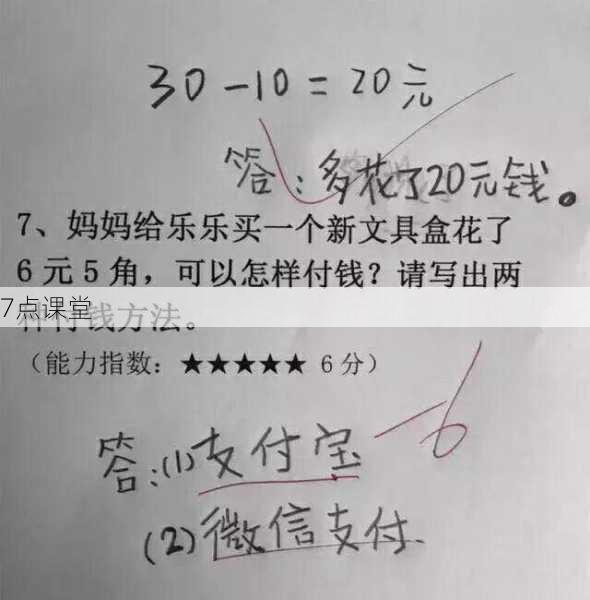 30-10=20元
答：多花了20元钱。
7、妈妈给乐乐买一个新文具盒花了
6元5角，可以怎样付钱？请写出两
种付钱方法。
7点课堂
（能力指数：★★★★★ 6分）
-6
答：(1)支付宝
(2)微信支付.